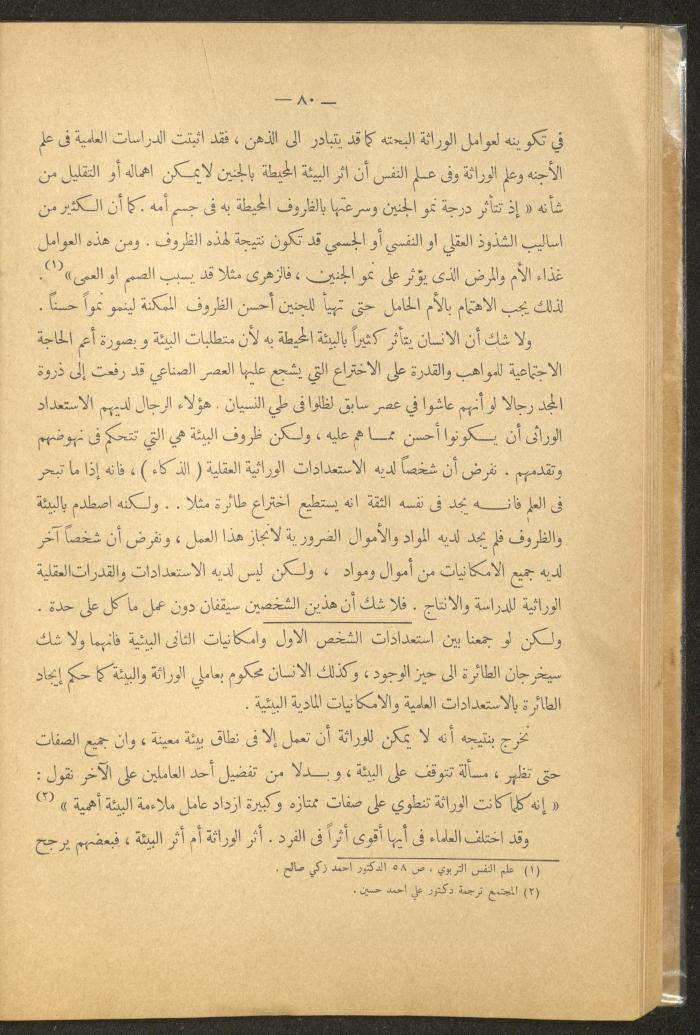 — ٨٠ —
في تكوينه لعوامل الوراثة البحته كما قد يتبادر الى الذهن ، فقد اثبتت الدراسات العلمية فى علم
الأجنه وعلم الوراثة وفى علم النفس أن اثر البيئة المحيطة بالجنين لايمكن اهماله أو التقليل من
شأنه « إذ تتأثر درجة نمو الجنين وسرعتها بالظروف المحيطة به فى جسم أمه . كما أن الكثير من
اساليب الشذوذ العقلي او النفسي أو الجسمي قد تكون نتيجة لهذه الظروف . ومن هذه العوامل
غذاء الأم والمرض الذى يؤثر على نمو الجنين ، فالزهرى مثلا قد يسبب الصمم او العمى» (١) .
لذلك يجب الاهتمام بالأم الحامل حتى تهيأ للجنين أحسن الظروف الممكنة لينمو نمواً حسناً .
ولا شك أن الانسان يتأثر كثيراً بالبيئة المحيطة به لأن متطلبات البيئة و بصورة أعم الحاجة
الاجتماعية للمواهب والقدرة على الاختراع التي يشجع عليها العصر الصناعي قد رفعت إلى ذروة
المجد رجالا لو أنهم عاشوا في عصر سابق لظلوا فى طي النسيان . هؤلاء الرجال لديهم الاستعداد
الوراثى أن يكونوا أحسن مما هم عليه ، ولكن ظروف البيئة هي التي تتحكم فى نهوضهم
وتقدمهم . نفرض أن شخصاً لديه الاستعدادات الوراثية العقلية ( الذكاء ) ، فانه إذا ما تبحر
فى العلم فانه يجد فى نفسه الثقة انه يستطيع اختراع طائرة مثلا . . ولكنه اصطدم بالبيئة
والظروف فلم يجد لديه المواد والأموال الضرورية لانجاز هذا العمل ، ونفرض أن شخصاً آخر
لديه جميع الامكانيات من أموال ومواد ، ولكن ليس لديه الاستعدادات والقدرات العقلية
الوراثية للدراسة والانتاج . فلا شك أن هذين الشخصين سيقفان دون عمل ما كل على حدة .
ولكن لو جمعنا بين استعدادات الشخص الاول وامكانيات الثانى البيئية فانهما ولا شك
سيخرجان الطائرة الى حيز الوجود ، وكذلك الانسان محكوم بعاملي الوراثة والبيئة كما حكم إيجاد
الطائرة بالاستعدادات العلمية والامكانيات المادية البيئية .
نخرج بنتيجه أنه لا يمكن للوراثة أن تعمل إلا فى نطاق بيئة معينة ، وان جميع الصفات
حتى تظهر ، مسألة تتوقف على البيئة ، وبدلا من تفضيل أحد العاملين على الآخر نقول :
« إنه كلما كانت الوراثة تنطوي على صفات ممتازه وكبيرة ازداد عامل ملاءمة البيئة أهمية » (٢)
وقد اختلف العلماء فى أيها أقوى أثراً فى الفرد . أثر الوراثة أم أثر البيئة ، فبعضهم يرجح
(١) علم النفس التربوي . ص ٥٨ الدكتور احمد زكي صالح .
(٢) المجتمع ترجمة دكتور علي احمد حسين .